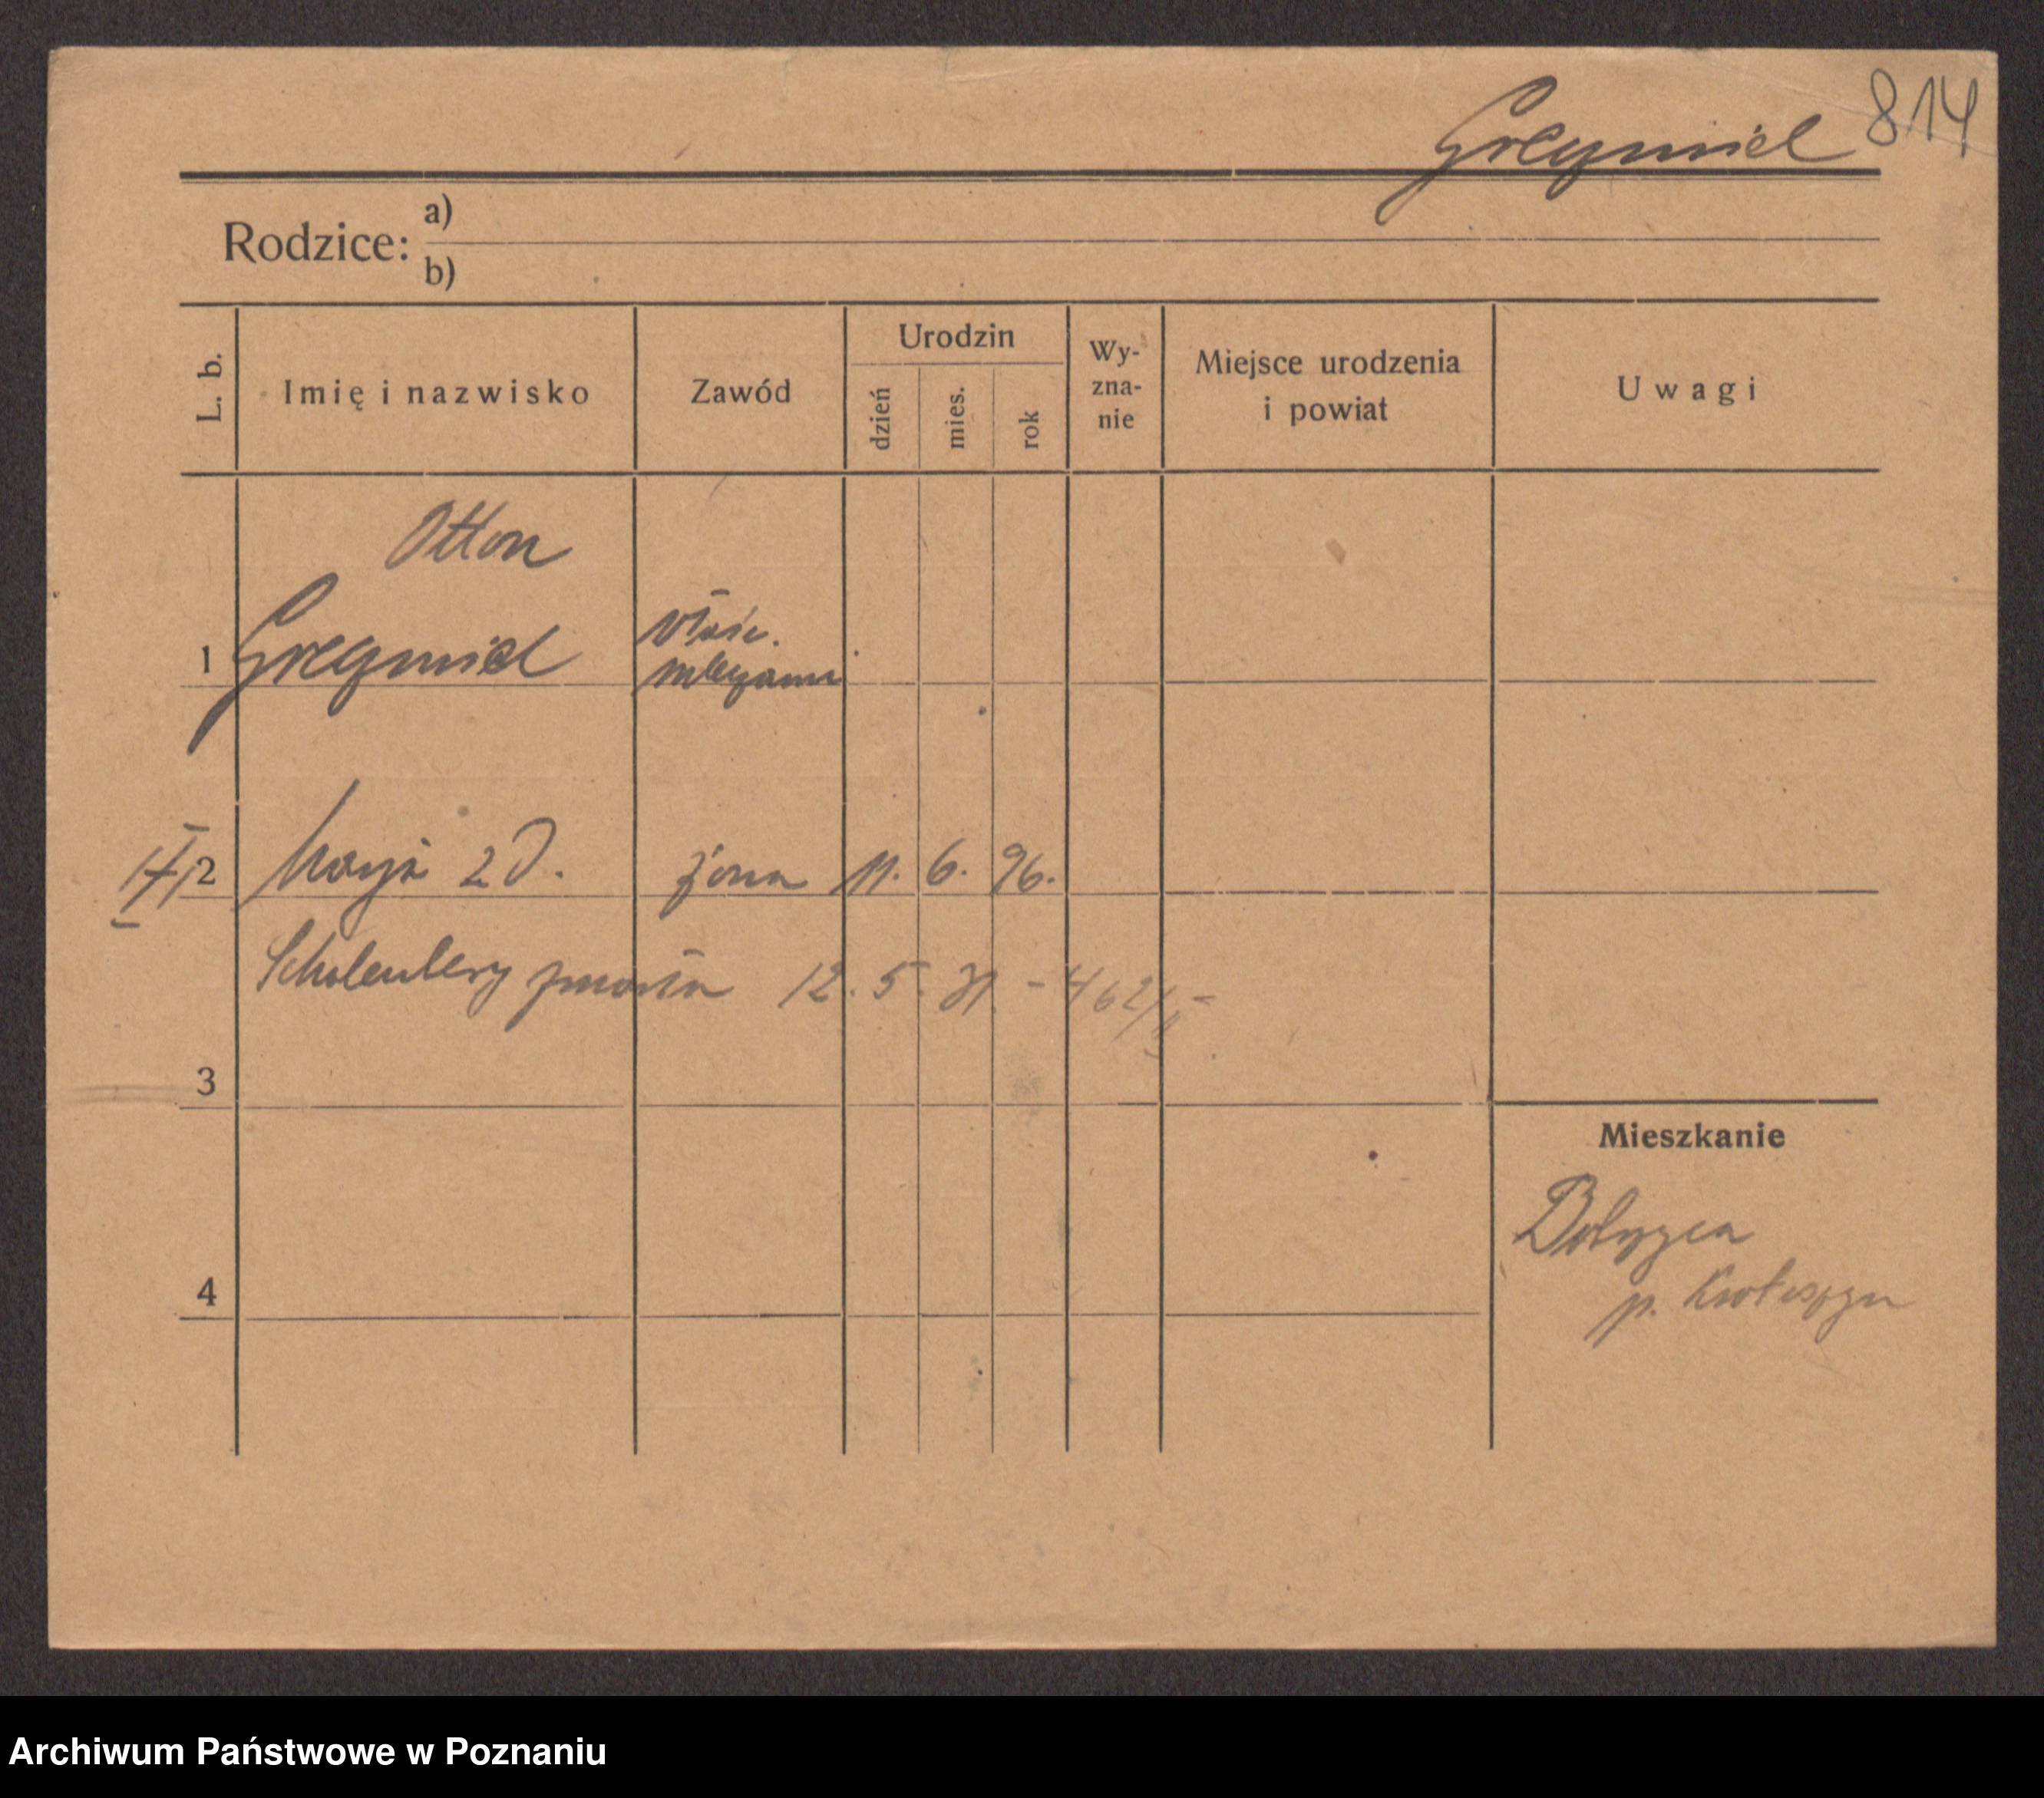 Greymiel 814
Rodzice: a)
b)
L. b. Imię i nazwisko Zawód Urodzin dzień mies. rok Wy-zna-nie Miejsce urodzenia i powiat Uwagi
Otton
1 Greymiel właśc.
mleczarni
2 Marja z d. żona 11. 6. 96.
Scholenberg zmarła 12. 5. 31. - 462/II
3
Mieszkanie
p. Krotoszyn
4
Archiwum Państwowe w Poznaniu